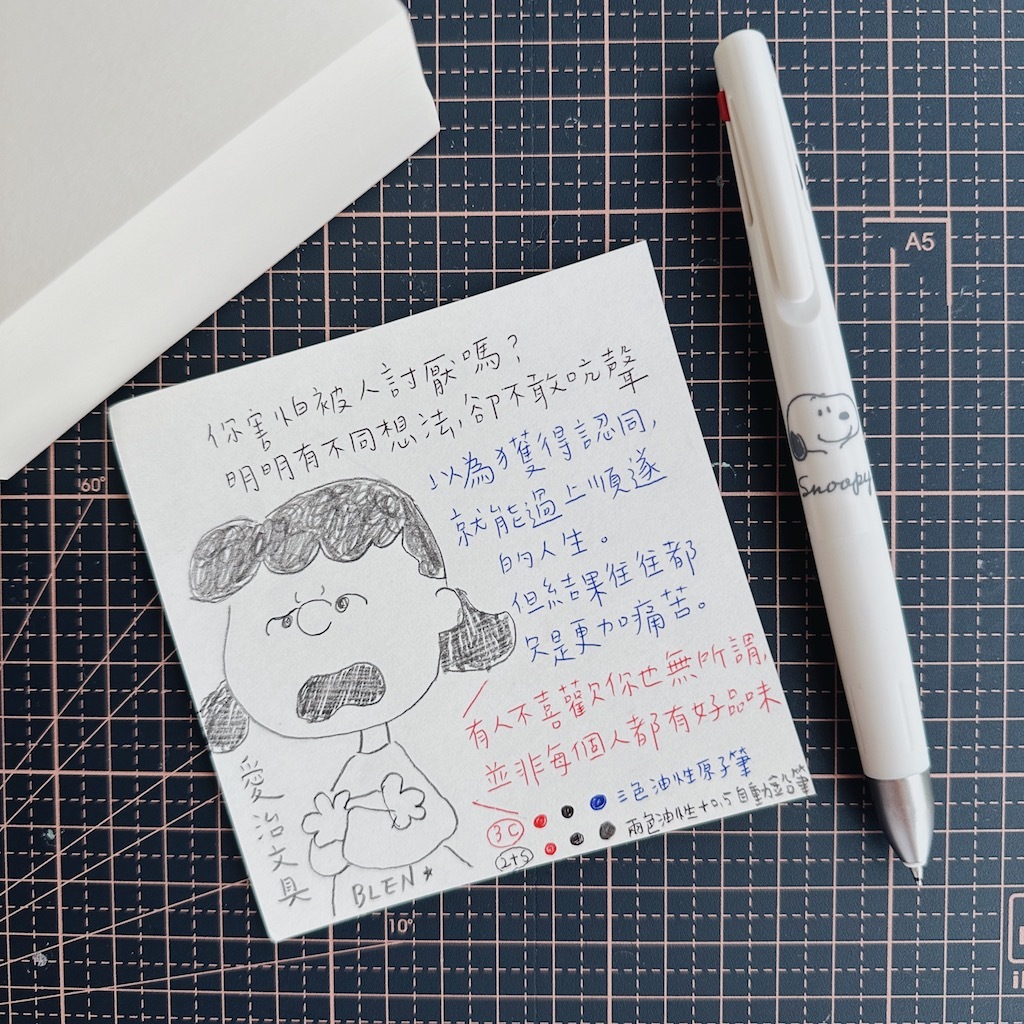 你害怕被人討厭嗎?
明明有不同想法,卻不敢吭聲
以為獲得認同,
就能過上順遂
的人生。
但結果往往都
只是更加痛苦。
有人不喜歡你也無所謂,
並非每個人都有好品味
3C 三色油性原子筆
2+S 兩色油性+0.5自動鉛筆
愛治文具
BLEN
Snoopy
A5
60°
10°